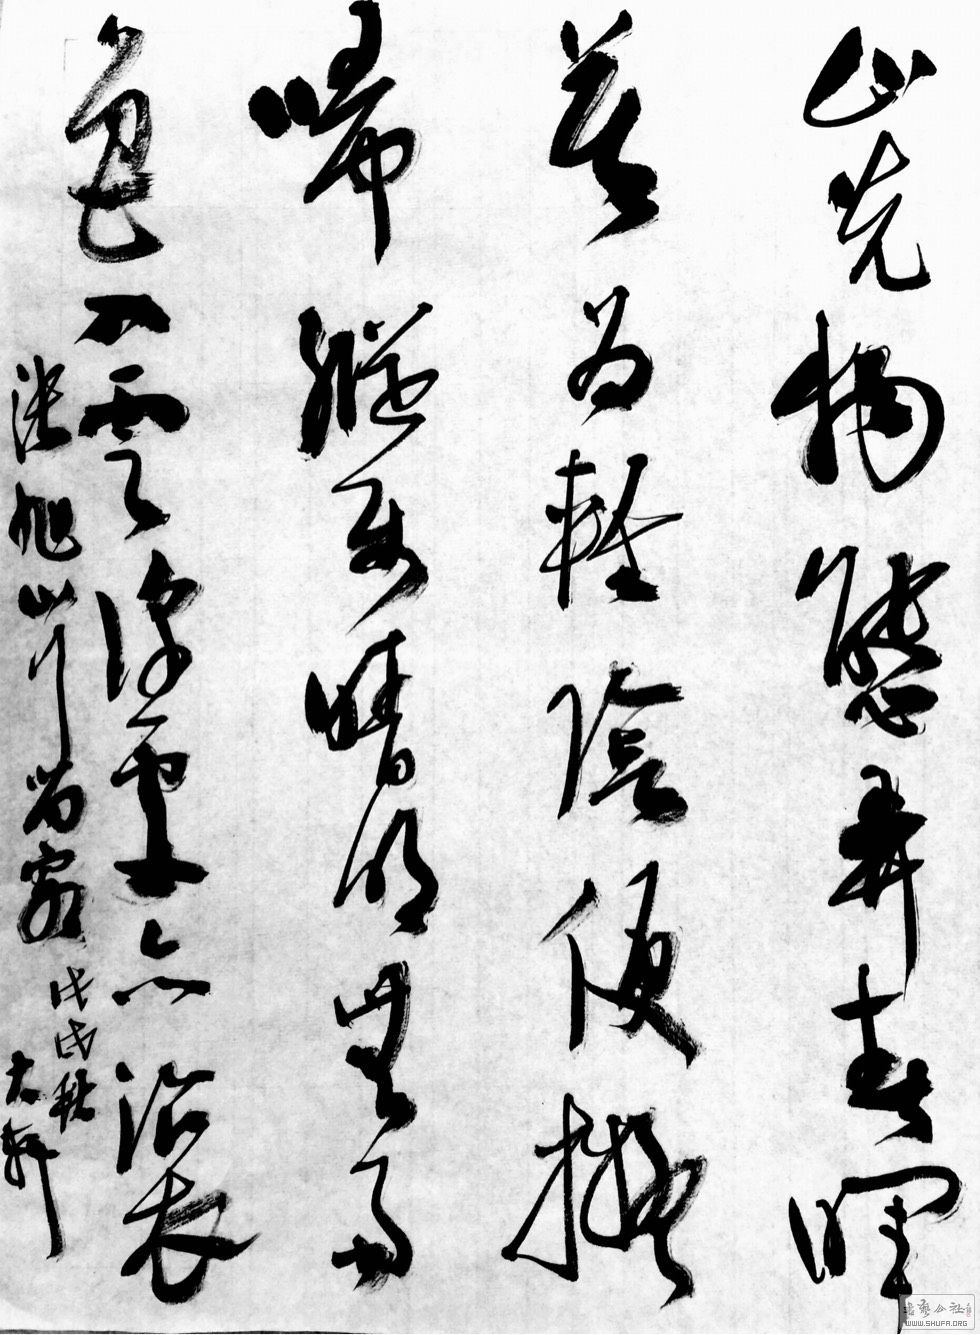 山光物態弄春暉
莫為輕陰便擬
歸縱使晴明無雨
色入雲深處亦沾衣
張旭山行留客
戊戌秋
大軒
書藝公社
WWW.SHUFA.ORG